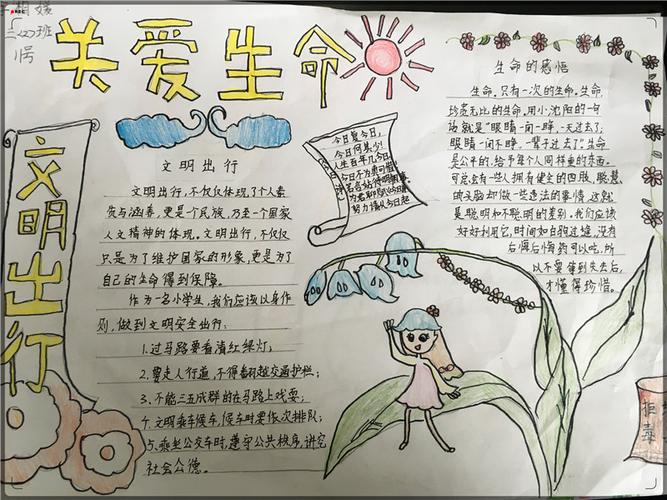 三(2)班
关爱生命
文明出行
文明出行
文明出行,不仅仅体现了个人素
质与涵养,更是个民族,乃至一个国家
人文精神的体现。文明出行,不仅仅
只是为了维护国家的形象,更是为了
自己的生命得到保障。
作为一名小学生,我们应该以身作
则,做到文明安全出行:
1.过马路要看清红绿灯;
2.要走人行道,不得翻越交通护栏;
3.不能三五成群的在马路上戏耍;
4.文明乘车候车,候车时要依次排队;
5.乘坐公交车时,遵守公共秩序,讲究
社会公德。
今日复今日,
今日何其少!
人生百年几今日,
今日不为真可惜
努力请从今日起
生命的感悟
生命,只有一次的生命。生命,
珍贵无比的生命,用小沈阳的一句
话就是"眼睛一闭一睁,一天过去了;
眼睛一闭不睁,一辈子过去了!"生命
是公平的,给予每个人同样重的东西。
可总会有一些人拥有健全的四肢、聪慧
的头脑却做一些违法的事情,这就
是聪明和不聪明的差别,我们应该
好好利用它,时间如白驹过隙,没有
后悔后悔药可以吃,所
以不要等到失去后,
才懂得珍惜。
拒毒